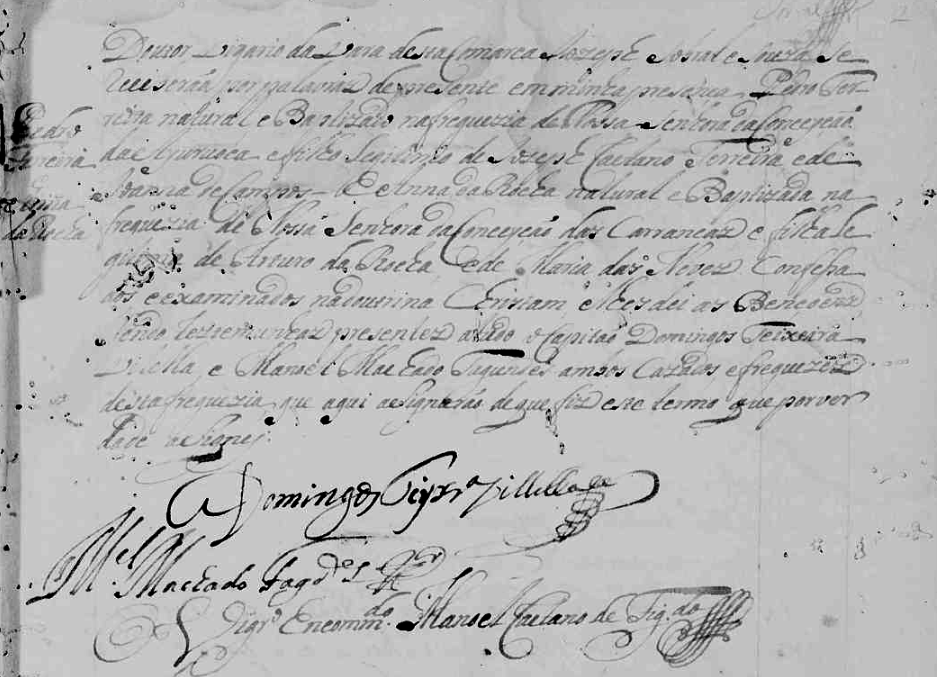 Doutor Vigario da Vara desta Comarca Jozeph Sobral e Souza Se
receberaõ por palavras de prezente em minha prezença Pedro Fer-
reira natural e Baptizado na freguezia de Nossa Senhora da Conceyçaõ
da Ayuruoca e filho Legitimo de Jozeph Caetano Ferreira e de
Joanna de Campos - E Anna da Rocha natural e Baptizada na
freguezia de Nossa Senhora da Conceyçaõ das Carrancas e filha le
gitima de Arturo da Rocha e de Maria das Neves Confessa
dos e examinados na doutrina Christam e lhes dei as Bençoens
sendo testemunhas prezentes o Capitaõ Domingos Teixeira
Vilella e Manoel Machado Fagundes ambos Cazados e freguezes
desta freguezia que aqui asignaraõ de que fiz este termo que por ver
dade asigney
Pedro
Ferreira
da Rocha
Domingos Teyxrª Villella
Mel Machado Fagdes
O Vigrº Encommdo Manoel Caetano de Figdo